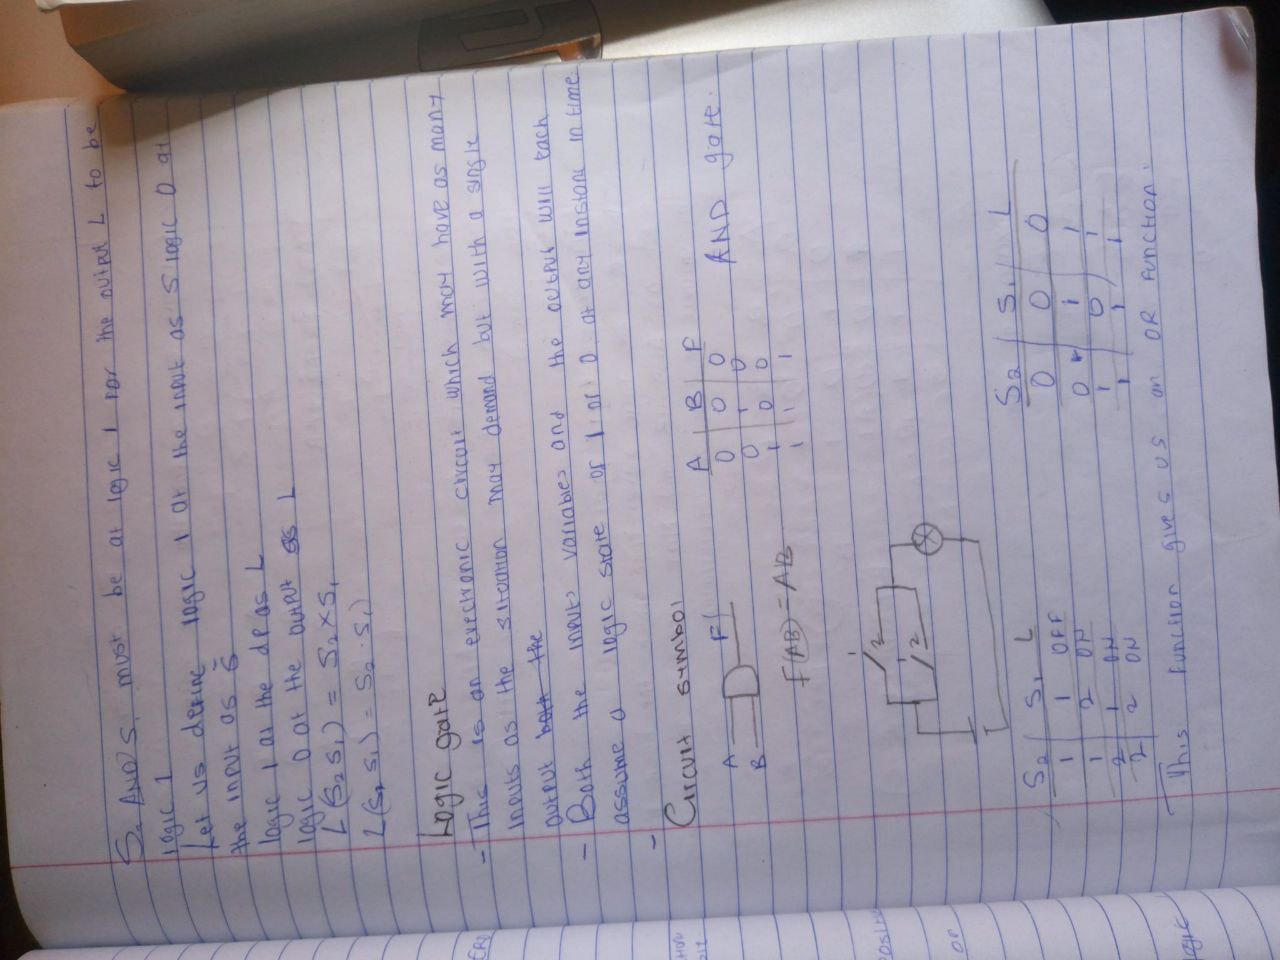 S₂ AND S₁ must be at logic 1 for the output L to be
logic 1
Let us define logic 1 at the input as S logic 0 at
the input as S̄
logic 1 at the dp as L
logic 0 at the output as L
L(S₂ S₁) = S₂ × S₁
L(S₂ S₁) = S₂ · S₁)
Logic gate
- This is an electronic circuit which may have as many
inputs as the situation may demand but with a single
output both the
- Both the inputs variables and the output will each
assume a logic state of 1 or 0 at any instant in time
-
Circuit symbol
A B F
A F
B
0 0 0
AND gate.
0 1 0
1 0 0
1 1 1
F(AB) = AB
1
2
1
2
S₂ S₁ L
1 1 OFF
1 2 ON
2 1 ON
2 2 ON
S₂ S₁ L
0 0 0
0 1 1
1 0 1
1 1 1
This function gives us an OR function.